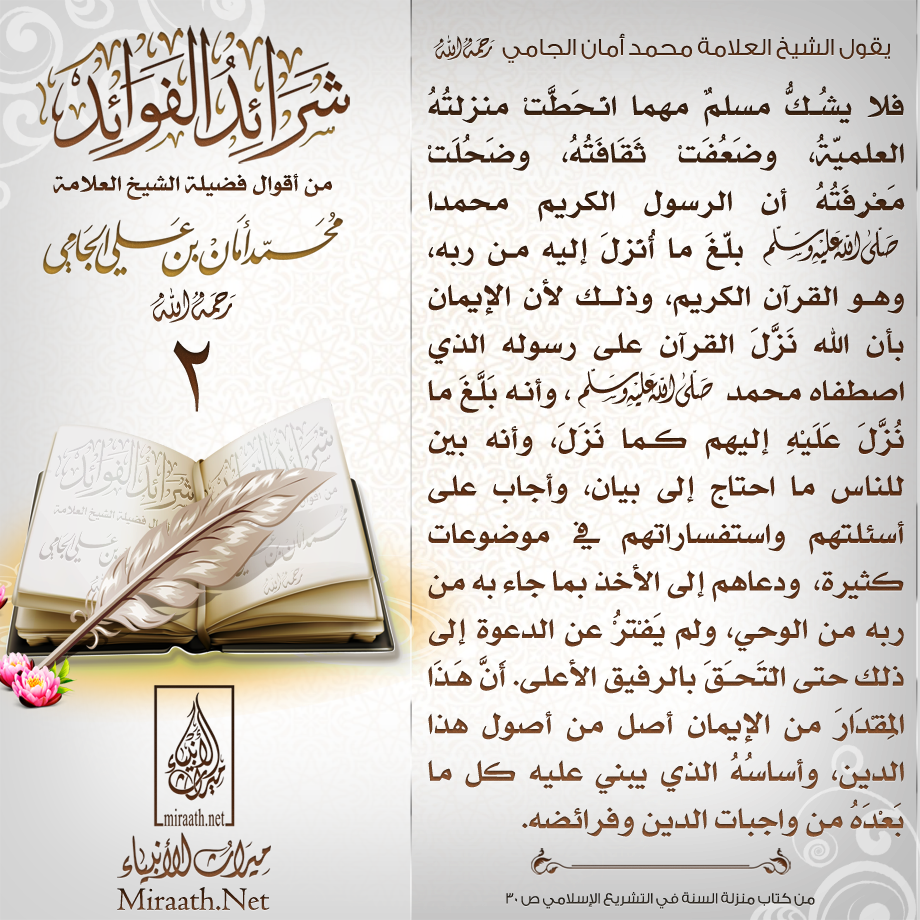 يقول الشيخ العلامة محمد أمان الجامي رَحِمَهُ اللهُ
فلا يشُكُّ مسلمٌ مهما انحَطَّتْ منزلتُهُ
العلميّةُ، وضَعُفَتْ ثَقَافَتُهُ، وضَحُلَتْ
مَعْرفَتُهُ أن الرسول الكريم محمدا
صَلَّى اللهُ عَلَيْهِ وَسَلَّمَ بلّغَ ما أُنْزلَ إليه من ربه،
وهو القرآن الكريم، وذلك لأن الإيمان
بأن الله نَزَّلَ القرآن على رسوله الذي
اصطفاه محمد صَلَّى اللهُ عَلَيْهِ وَسَلَّمَ، وأنه بَلَّغَ ما
نُزَّلَ عَلَيْهِ إليهم كما نَزَلَ، وأنه بين
للناس ما احتاج إلى بيان، وأجاب على
أسئلتهم واستفساراتهم في موضوعات
كثيرة، ودعاهم إلى الأخذ بما جاء به من
ربه من الوحي، ولم يَفْتَرُ عن الدعوة إلى
ذلك حتى الْتَحَقَ بالرفيق الأعلى. أَنَّ هَذَا
المِقْدَارَ من الإيمان أصل من أصول هذا
الدين، وأساسُهُ الذي يبني عليه كل ما
بَعْدَهُ من واجبات الدين وفرائضه.
من كتاب منزلة السنة في التشريع الإسلامي ص ٣٠
شَرَائِدُ الفَوَائِدْ
من أقوال فضيلة الشيخ العلامة
مُحَمَّد أَمَان بن عَلي الجَامِي
رَحِمَهُ اللهُ
٢
شَرَائِدُ الفَوَائِدْ
من أقوال فضيلة الشيخ العلامة
ميراث الأنبياء
miraath.net
ميراث الأنبياء
Miraath.Net